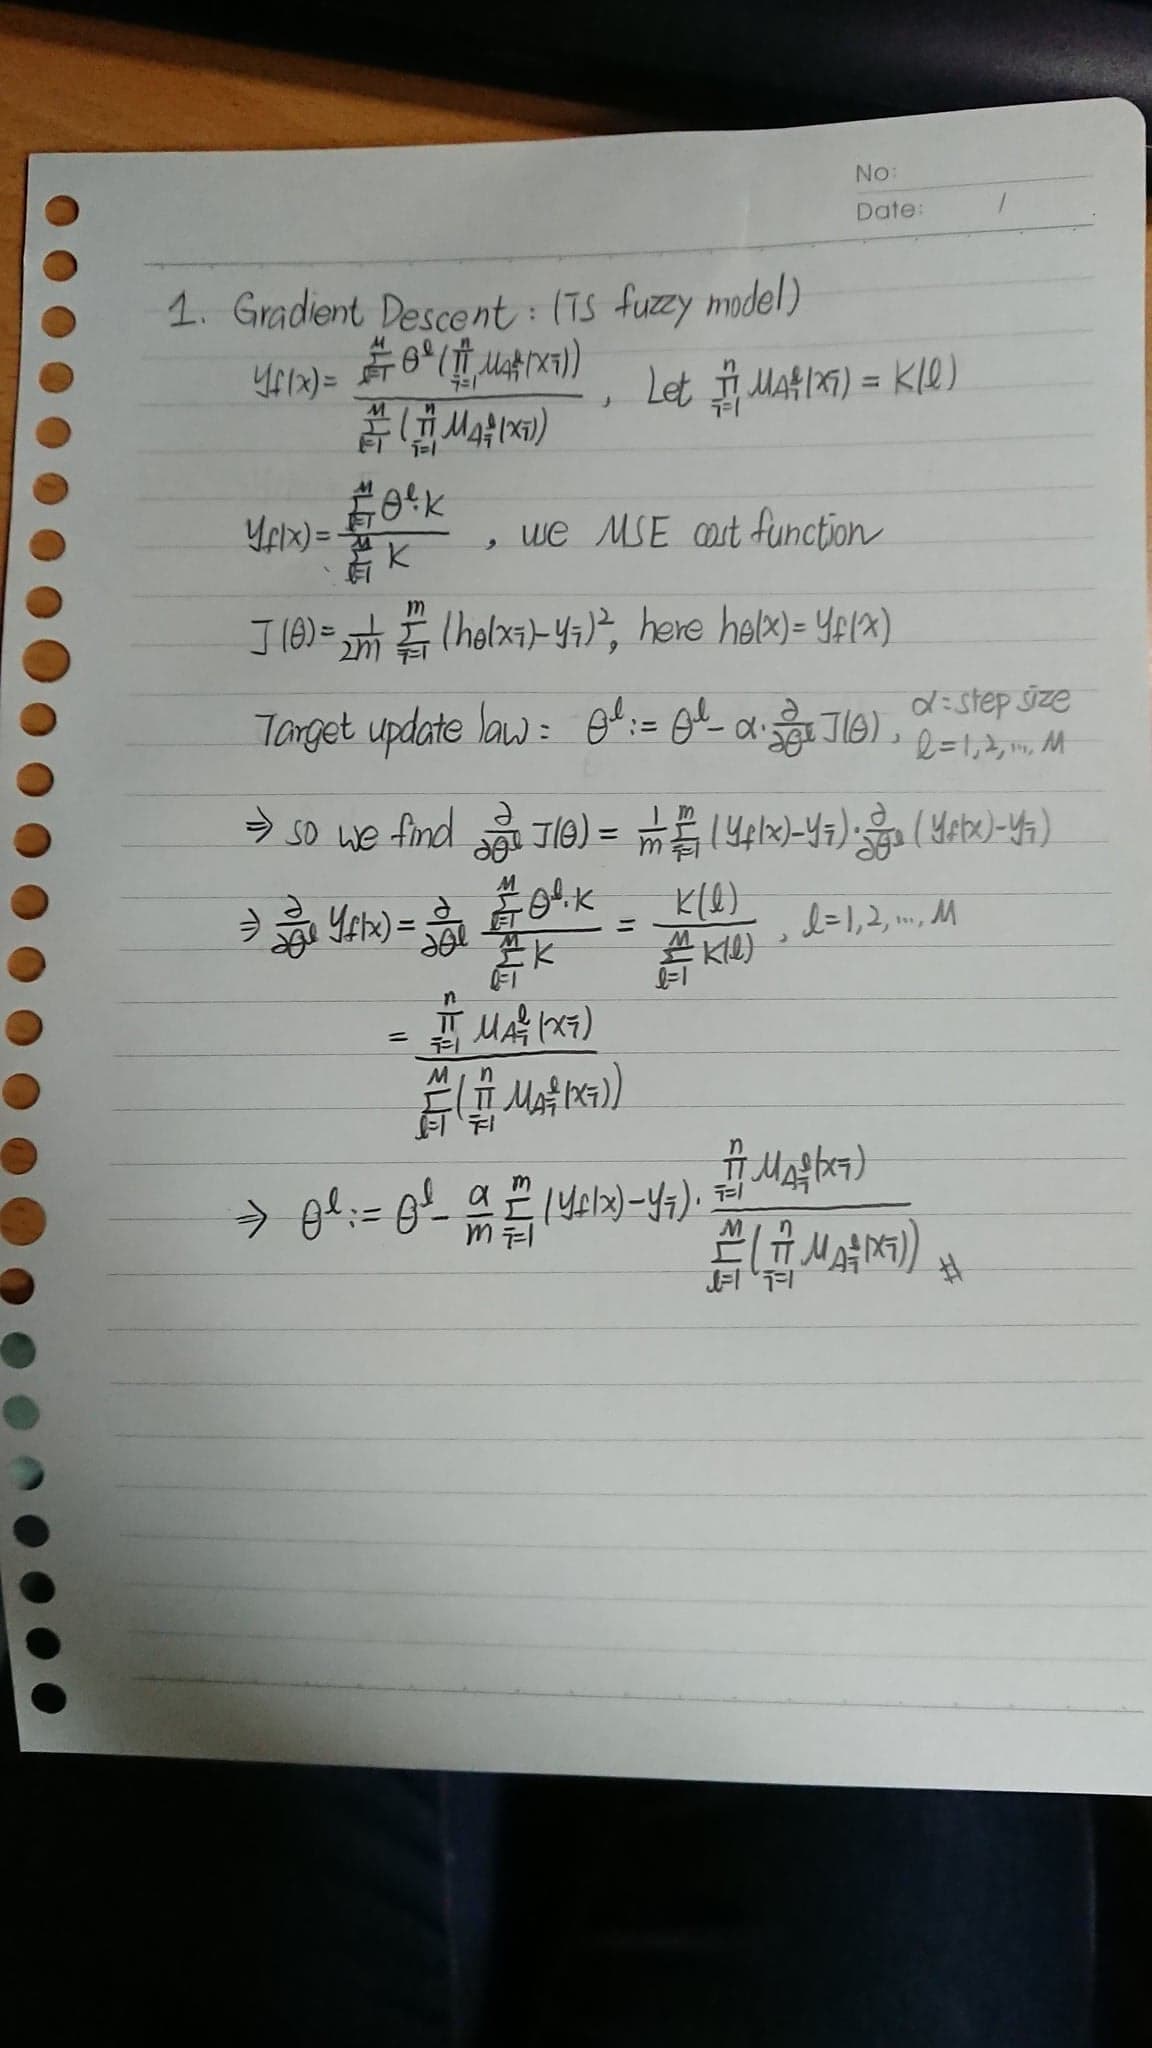 No:
Date: /
1. Gradient Descent : (TS fuzzy model)
y_f(x) = \frac{\sum_{l=1}^{M} θ^l (\prod_{i=1}^{n} μ_{A_i^l}(x_i))}{\sum_{l=1}^{M} (\prod_{i=1}^{n} μ_{A_i^l}(x_i))} , Let \prod_{i=1}^{n} μ_{A_i^l}(x_i) = K(l)
y_f(x) = \frac{\sum_{l=1}^{M} θ^l · K}{\sum_{l=1}^{M} K} , we MSE cost function
J(θ) = \frac{1}{2m} \sum_{i=1}^{m} (h_θ(x_i) - y_i)^2, here h_θ(x) = y_f(x)
Target update law : θ^l := θ^l - α · \frac{∂}{∂θ^l} J(θ) , α = step size
l = 1, 2, ..., M
⇒ so we find \frac{∂}{∂θ^l} J(θ) = \frac{1}{m} \sum_{i=1}^{m} (y_f(x) - y_i) · \frac{∂}{∂θ^l} (y_f(x) - y_i)
⇒ \frac{∂}{∂θ^l} y_f(x) = \frac{∂}{∂θ^l} \frac{\sum_{l=1}^{M} θ^l · K}{\sum_{l=1}^{M} K} = \frac{K(l)}{\sum_{l=1}^{M} K(l)} , l = 1, 2, ..., M
= \frac{\prod_{i=1}^{n} μ_{A_i^l}(x_i)}{\sum_{l=1}^{M} (\prod_{i=1}^{n} μ_{A_i^l}(x_i))}
⇒ θ^l := θ^l - \frac{α}{m} \sum_{i=1}^{m} (y_f(x) - y_i) · \frac{\prod_{i=1}^{n} μ_{A_i^l}(x_i)}{\sum_{l=1}^{M} (\prod_{i=1}^{n} μ_{A_i^l}(x_i))} #